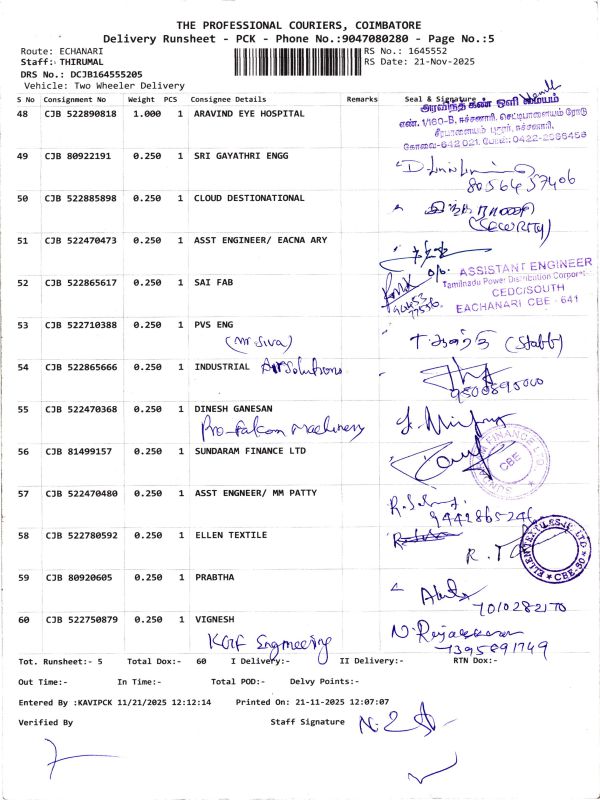 THE PROFESSIONAL COURIERS, COIMBATORE
Delivery Runsheet - PCK - Phone No.:9047080280 - Page No.:5
Route: ECHANARI RS No.: 1645552
Staff: THIRUMAL RS Date: 21-Nov-2025
DRS No.: DCJB164555205
Vehicle: Two Wheeler Delivery
S No Consignment No Weight PCS Consignee Details Remarks Seal & Signature
48 CJB 522890818 1.000 1 ARAVIND EYE HOSPITAL
அரவிந்த் கண் ஒளி மையம்
எண். 1/160-B, ஈச்சனாரி, செட்டிபாளையம் ரோடு
கோவை-642 021. போன்: 0422-2566456
49 CJB 80922191 0.250 1 SRI GAYATHRI ENGG
8056437406
50 CJB 522885898 0.250 1 CLOUD DESTIONATIONAL
(Security)
51 CJB 522470473 0.250 1 ASST ENGINEER/ EACNA ARY
ASSISTANT ENGINEER
Tamilnadu Power Distribution Corporat
CEDC/SOUTH
EACHANARI CBE - 641
52 CJB 522865617 0.250 1 SAI FAB
53 CJB 522710388 0.250 1 PVS ENG
(Mr Siva) (Staff)
54 CJB 522865666 0.250 1 INDUSTRIAL Airsolutions
9500895000
55 CJB 522470368 0.250 1 DINESH GANESAN
Pro-Falcon Machinery
56 CJB 81499157 0.250 1 SUNDARAM FINANCE LTD
FINANCE LTD
CBE
57 CJB 522470480 0.250 1 ASST ENGNEER/ MM PATTY
9442865246
58 CJB 522780592 0.250 1 ELLEN TEXTILE
ELLEN TEXTILES (P) LTD
CBE-50
59 CJB 80920605 0.250 1 PRABTHA
7010282170
60 CJB 522750879 0.250 1 VIGNESH
KGF Engineering N. Rajasekaran
7395891749
Tot. Runsheet:- 5 Total Dox:- 60 I Delivery:- II Delivery:- RTN Dox:-
Out Time:- In Time:- Total POD:- Delvy Points:-
Entered By :KAVIPCK 11/21/2025 12:12:14 Printed On: 21-11-2025 12:07:07
Verified By Staff Signature